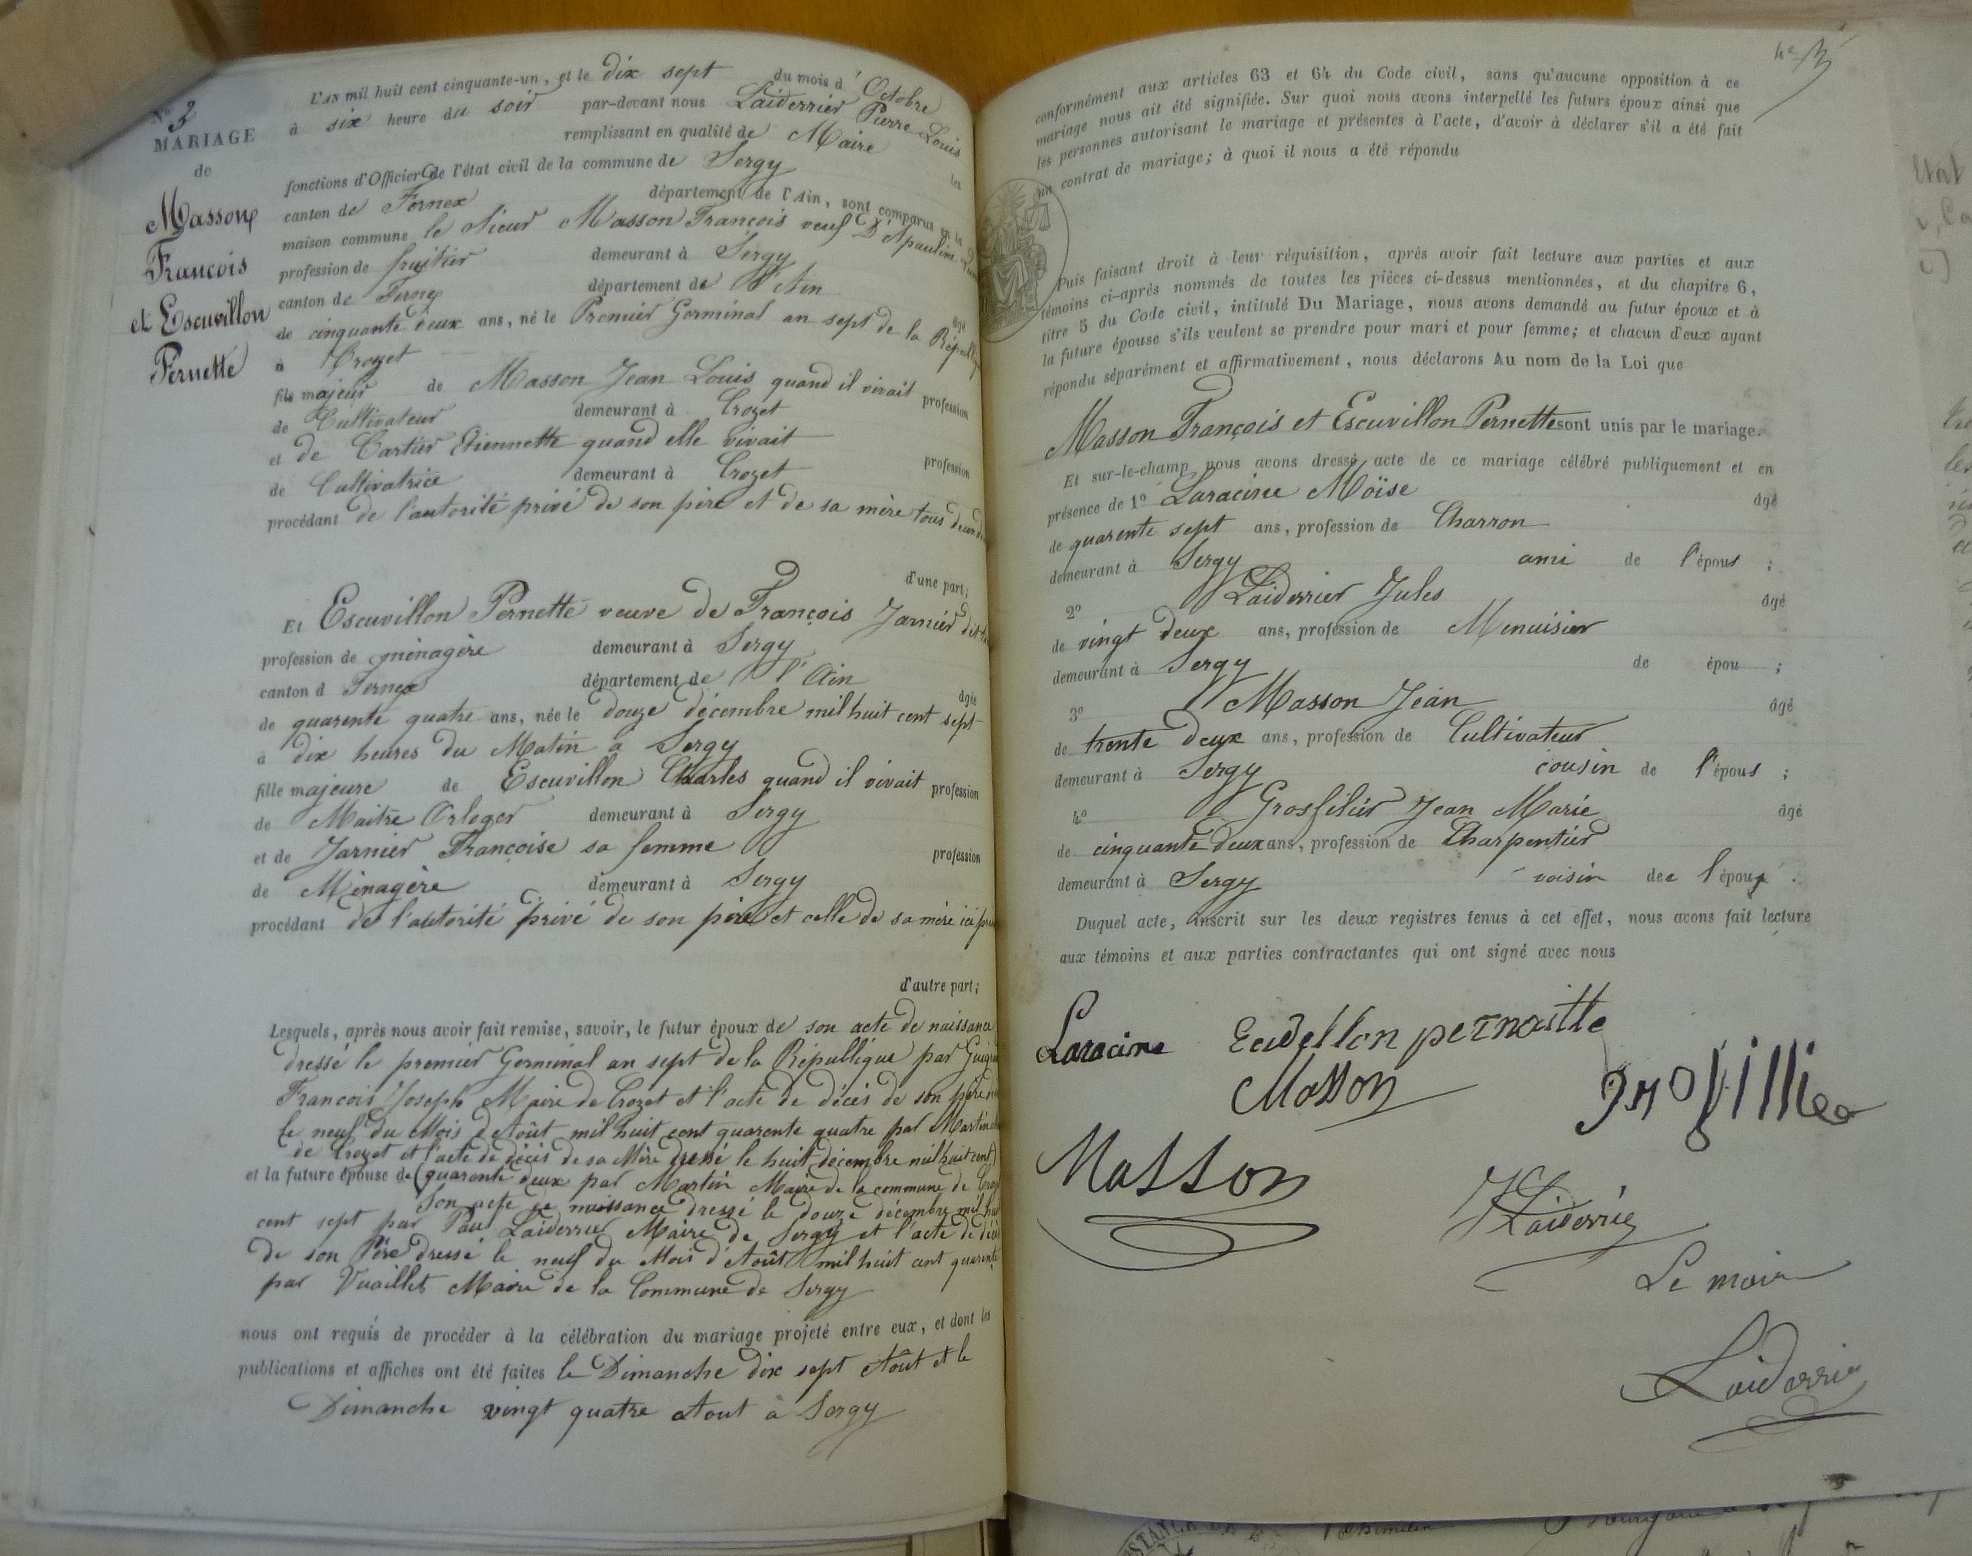 N.º 3
MARIAGE
de
Masson
François
et Escuvillon
Pernette
L'AN mil huit cent cinquante-un, et le dix sept du mois d'Octobre
à six heure du soir par-devant nous Laiderrier Pierre Louis
remplissant en qualité de Maire les
fonctions d'Officier de l'état civil de la commune de Sergy
canton de Fernex département de l'Ain, sont comparus en la
maison commune le Sieur Masson François veuf D'Apauline
profession de fruitier demeurant à Sergy
canton de Ferney département de l'Ain
âgé
de cinquante deux ans, né le Premier Germinal an sept de la
à Crozet
fils majeur de Masson Jean Louis quand il vivait profession
de Cultivateur demeurant à Crozet
et de Cartier Etiennette quand elle vivait
profession
de Cultivatrice demeurant à Crozet
procédant de l'autorité privé de son père et de sa mère tous
d'une part;
Et Escuvillon Pernette veuve de François Jarnier
profession de ménagère demeurant à Sergy
canton d Fernex département de l'Ain
âgée
de quarente quatre ans, née le douze décembre mil huit cent sept
à dix heures du Matin à Sergy
fille majeure de Escuvillon Charles quand il vivait profession
de Maitre Orloger demeurant à Sergy
et de Jarnier Françoise sa femme profession
de Ménagère demeurant à Sergy
procédant de l'autorité privé de son père et celle de sa mère ici
d'autre part;
Lesquels, après nous avoir fait remise, savoir, le futur époux de son acte de naissance
dressé le premier Germinal an sept de la République par
François Joseph Maire de Crozet et l'acte de décès de son père
le neuf du Mois d'Août mil huit cent quarente quatre par Martin
de Crozet et l'acte de décès de sa Mère dressé le huit décembre mil huit cent
et la future épouse de (quarente deux par Martin Maire de la commune de
Son acte de naissance dressé le douze décembre mil
cent sept par Paul Laiderrier Maire de Sergy et l'acte de
de son Père dressé le neuf du Mois d'Août mil huit cent quarente
par Vuaillet Maire de la Commune de Sergy
nous ont requis de procéder à la célébration du mariage projeté entre eux, et dont les
publications et affiches ont été faites le Dimanche dix sept Août et le
Dimanche vingt quatre Aout à Sergy
4e
conformément aux articles 63 et 64 du Code civil, sans qu'aucune opposition à ce
mariage nous ait été signifiée. Sur quoi nous avons interpellé les futurs époux ainsi que
les personnes autorisant le mariage et présentes à l'acte, d'avoir à déclarer s'il a été fait
un contrat de mariage; à quoi il nous a été répondu
Puis faisant droit à leur réquisition, après avoir fait lecture aux parties et aux
témoins ci-après nommés de toutes les pièces ci-dessus mentionnées, et du chapitre 6,
titre 5 du Code civil, intitulé Du Mariage, nous avons demandé au futur époux et à
la future épouse s'ils veulent se prendre pour mari et pour femme; et chacun d'eux ayant
répondu séparément et affirmativement, nous déclarons Au nom de la Loi que
Masson François et Escuvillon Pernette sont unis par le mariage.
Et sur-le-champ nous avons dressé acte de ce mariage célébré publiquement et en
présence de 1º Laracine Moïse âgé
de quarente sept ans, profession de Charron
demeurant à Sergy ami de l'épous ;
2º Laiderrier Jules âgé
de vingt deux ans, profession de Menuisier
demeurant à Sergy de épou ;
3º Masson Jean âgé
de trente deux ans, profession de Cultivateur
demeurant à Sergy cousin de l'épous ;
4º Grosfilier Jean Marie âgé
de cinquante deux ans, profession de Charpentier
demeurant à Sergy voisin de l'épou .
Duquel acte, inscrit sur les deux registres tenus à cet effet, nous avons fait lecture
aux témoins et aux parties contractantes qui ont signé avec nous
Laracine
Masson
Masson
Le maire
Laiderrier